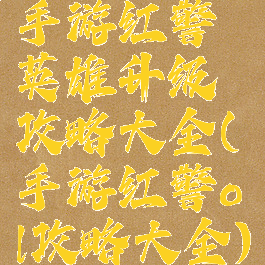 手游红警
英雄升级
攻略大全(
手游红警。
|攻略大全)